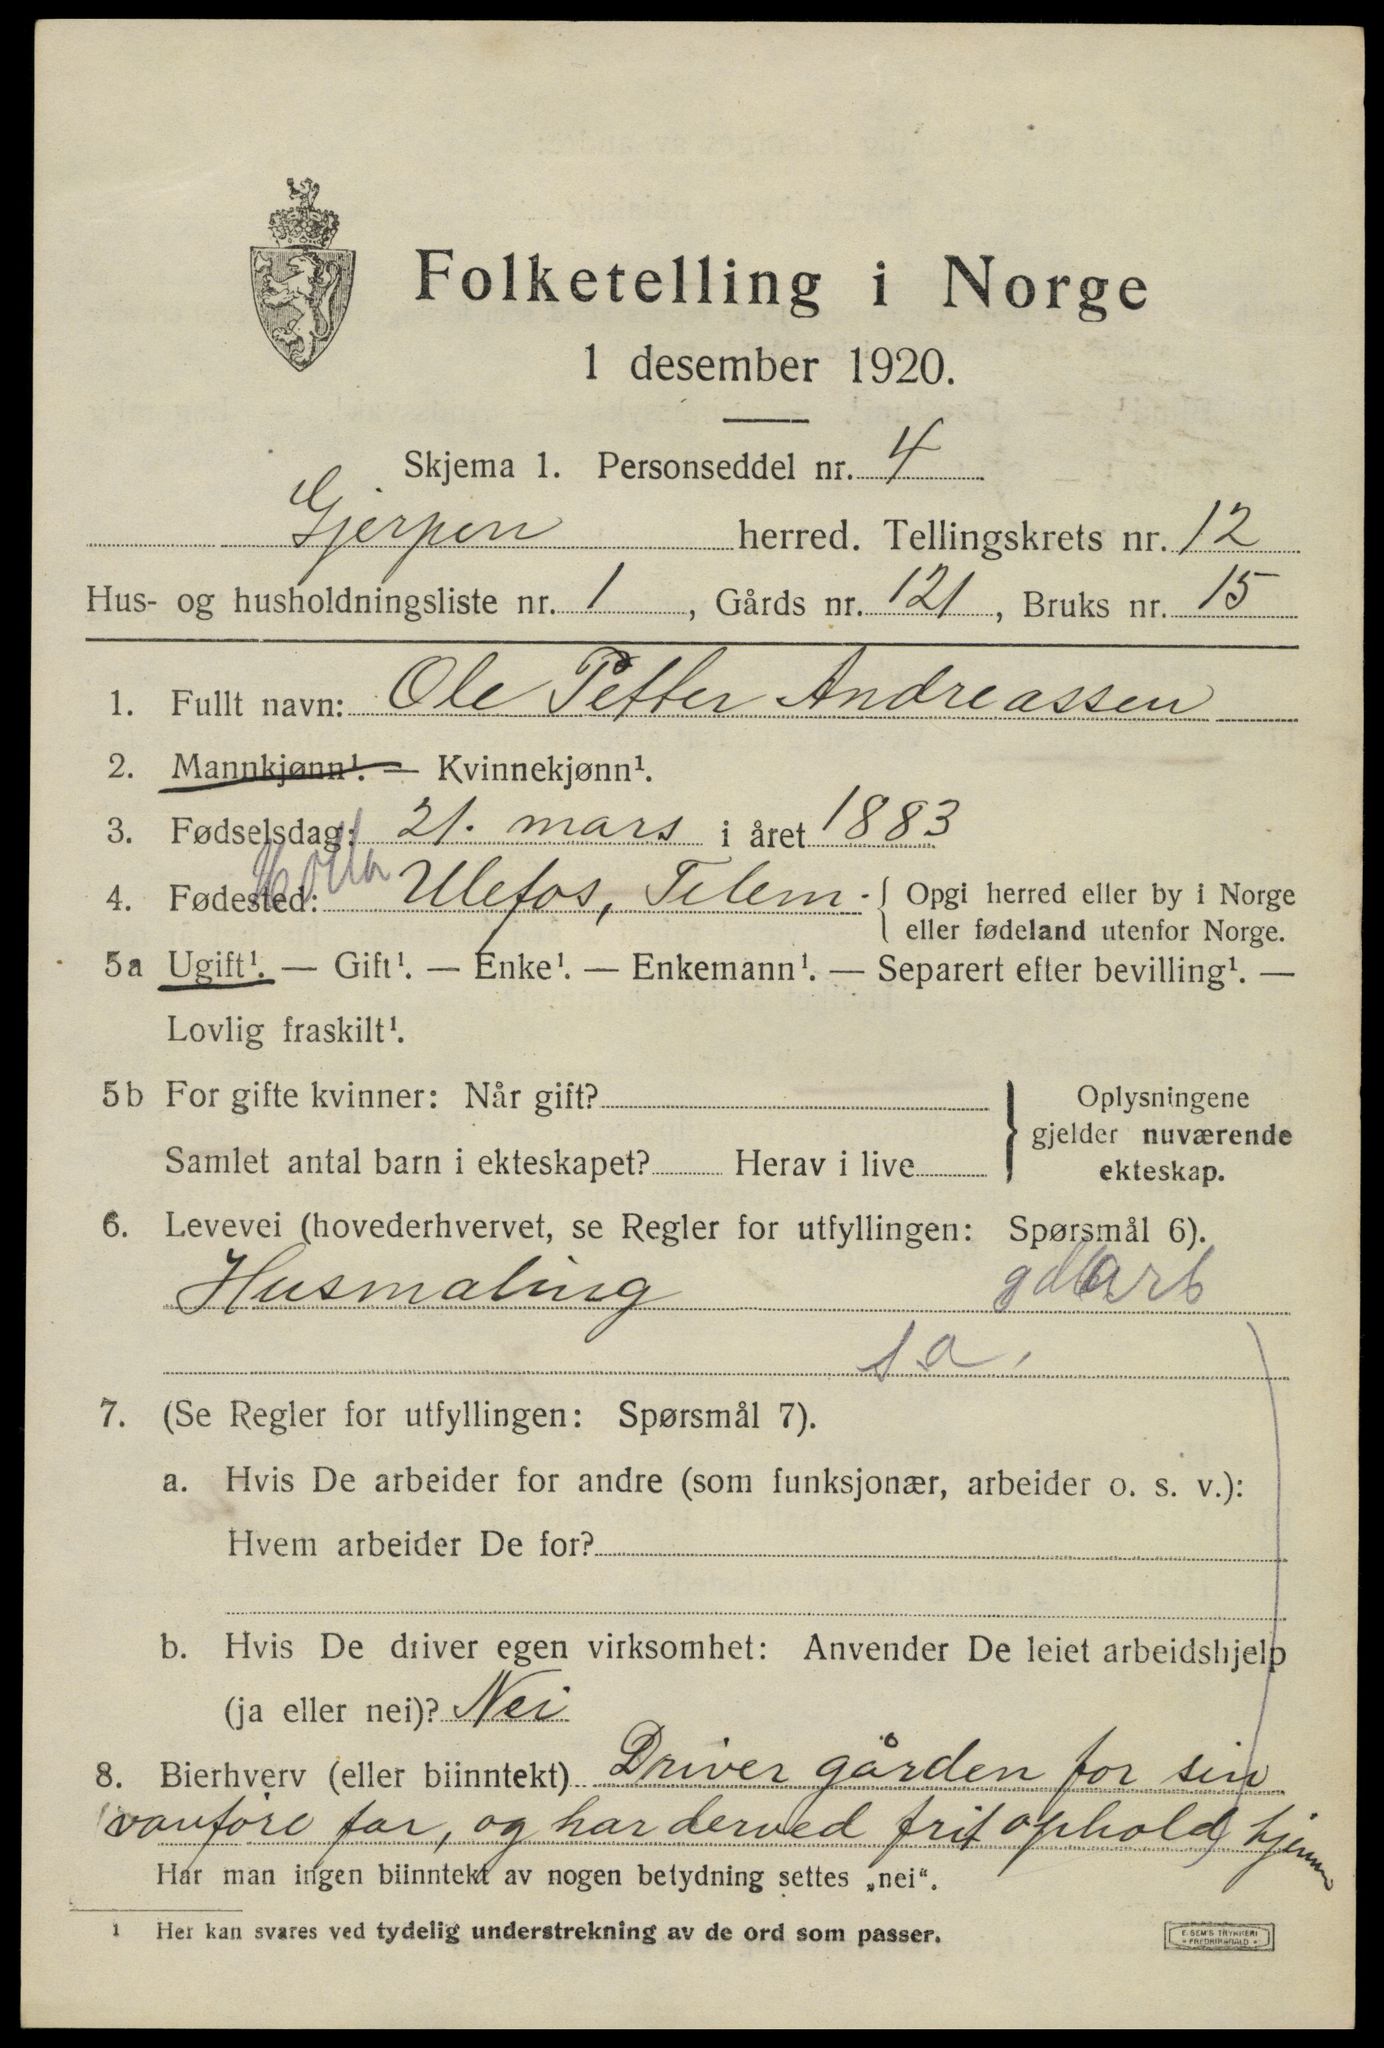 Folketelling i Norge
1 desember 1920.
Skjema 1. Personseddel nr. 4
Gjerpen herred. Tellingskrets nr. 12
Hus- og husholdningsliste nr. 1, Gårds nr. 121, Bruks nr. 15
1. Fullt navn: Ole Petter Andreassen
2. Mannkjønn¹. — Kvinnekjønn¹.
3. Fødselsdag: 21. mars i året 1883
Holla
4. Fødested: Ulefos, Telem. { Opgi herred eller by i Norge
eller fødeland utenfor Norge.
5a Ugift¹. — Gift¹. — Enke¹. — Enkemann¹. — Separert efter bevilling¹. —
Lovlig fraskilt¹.
5b For gifte kvinner: Når gift?
Samlet antal barn i ekteskapet? Herav i live
} Oplysningene
gjelder nuværende
ekteskap.
6. Levevei (hovederhvervet, se Regler for utfyllingen: Spørsmål 6).
Husmaling
s a.
7. (Se Regler for utfyllingen: Spørsmål 7).
a. Hvis De arbeider for andre (som funksjonær, arbeider o. s. v.):
Hvem arbeider De for?
b. Hvis De driver egen virksomhet: Anvender De leiet arbeidshjelp
(ja eller nei)? Nei
8. Bierhverv (eller biinntekt) Driver gården for sin
vanføre far, og har derved frit ophold hjemme
Har man ingen biinntekt av nogen betydning settes „nei“.
¹ Her kan svares ved tydelig understrekning av de ord som passer.
E. SEM'S TRYKKERI
FREDRIKSHALD